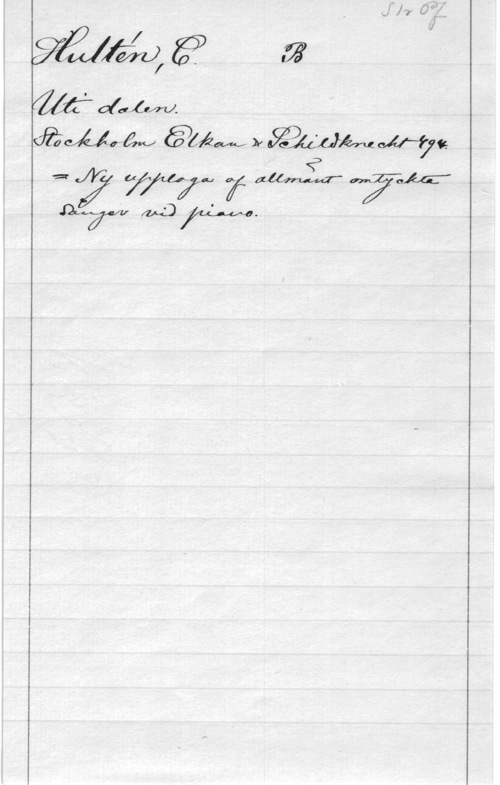 Hultén, C. B
Uti dalen.
Stockholm Elkan & Schildknecht
= Ny upplaga af allmänt omtyckta
Sånger vid piano.